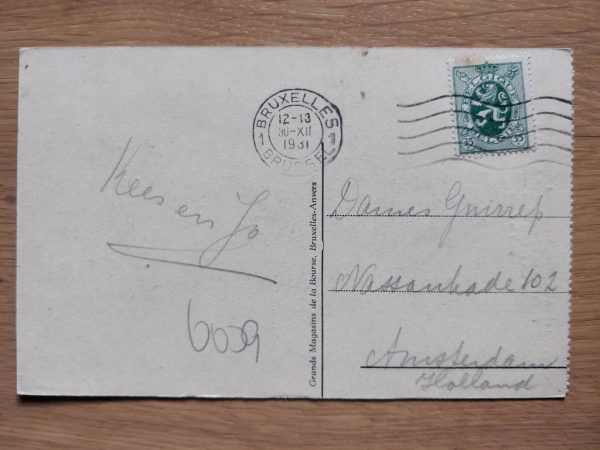 BRUXELLES
1 12-13 1
30-XII
1931
BRUSSEL
BELGIQUE
BELGIE
Kees en Jo
6039
Grands Magasins de la Bourse, Bruxelles-Anvers
Dames Gnirrep
Nassaukade 102
Amsterdam
Holland